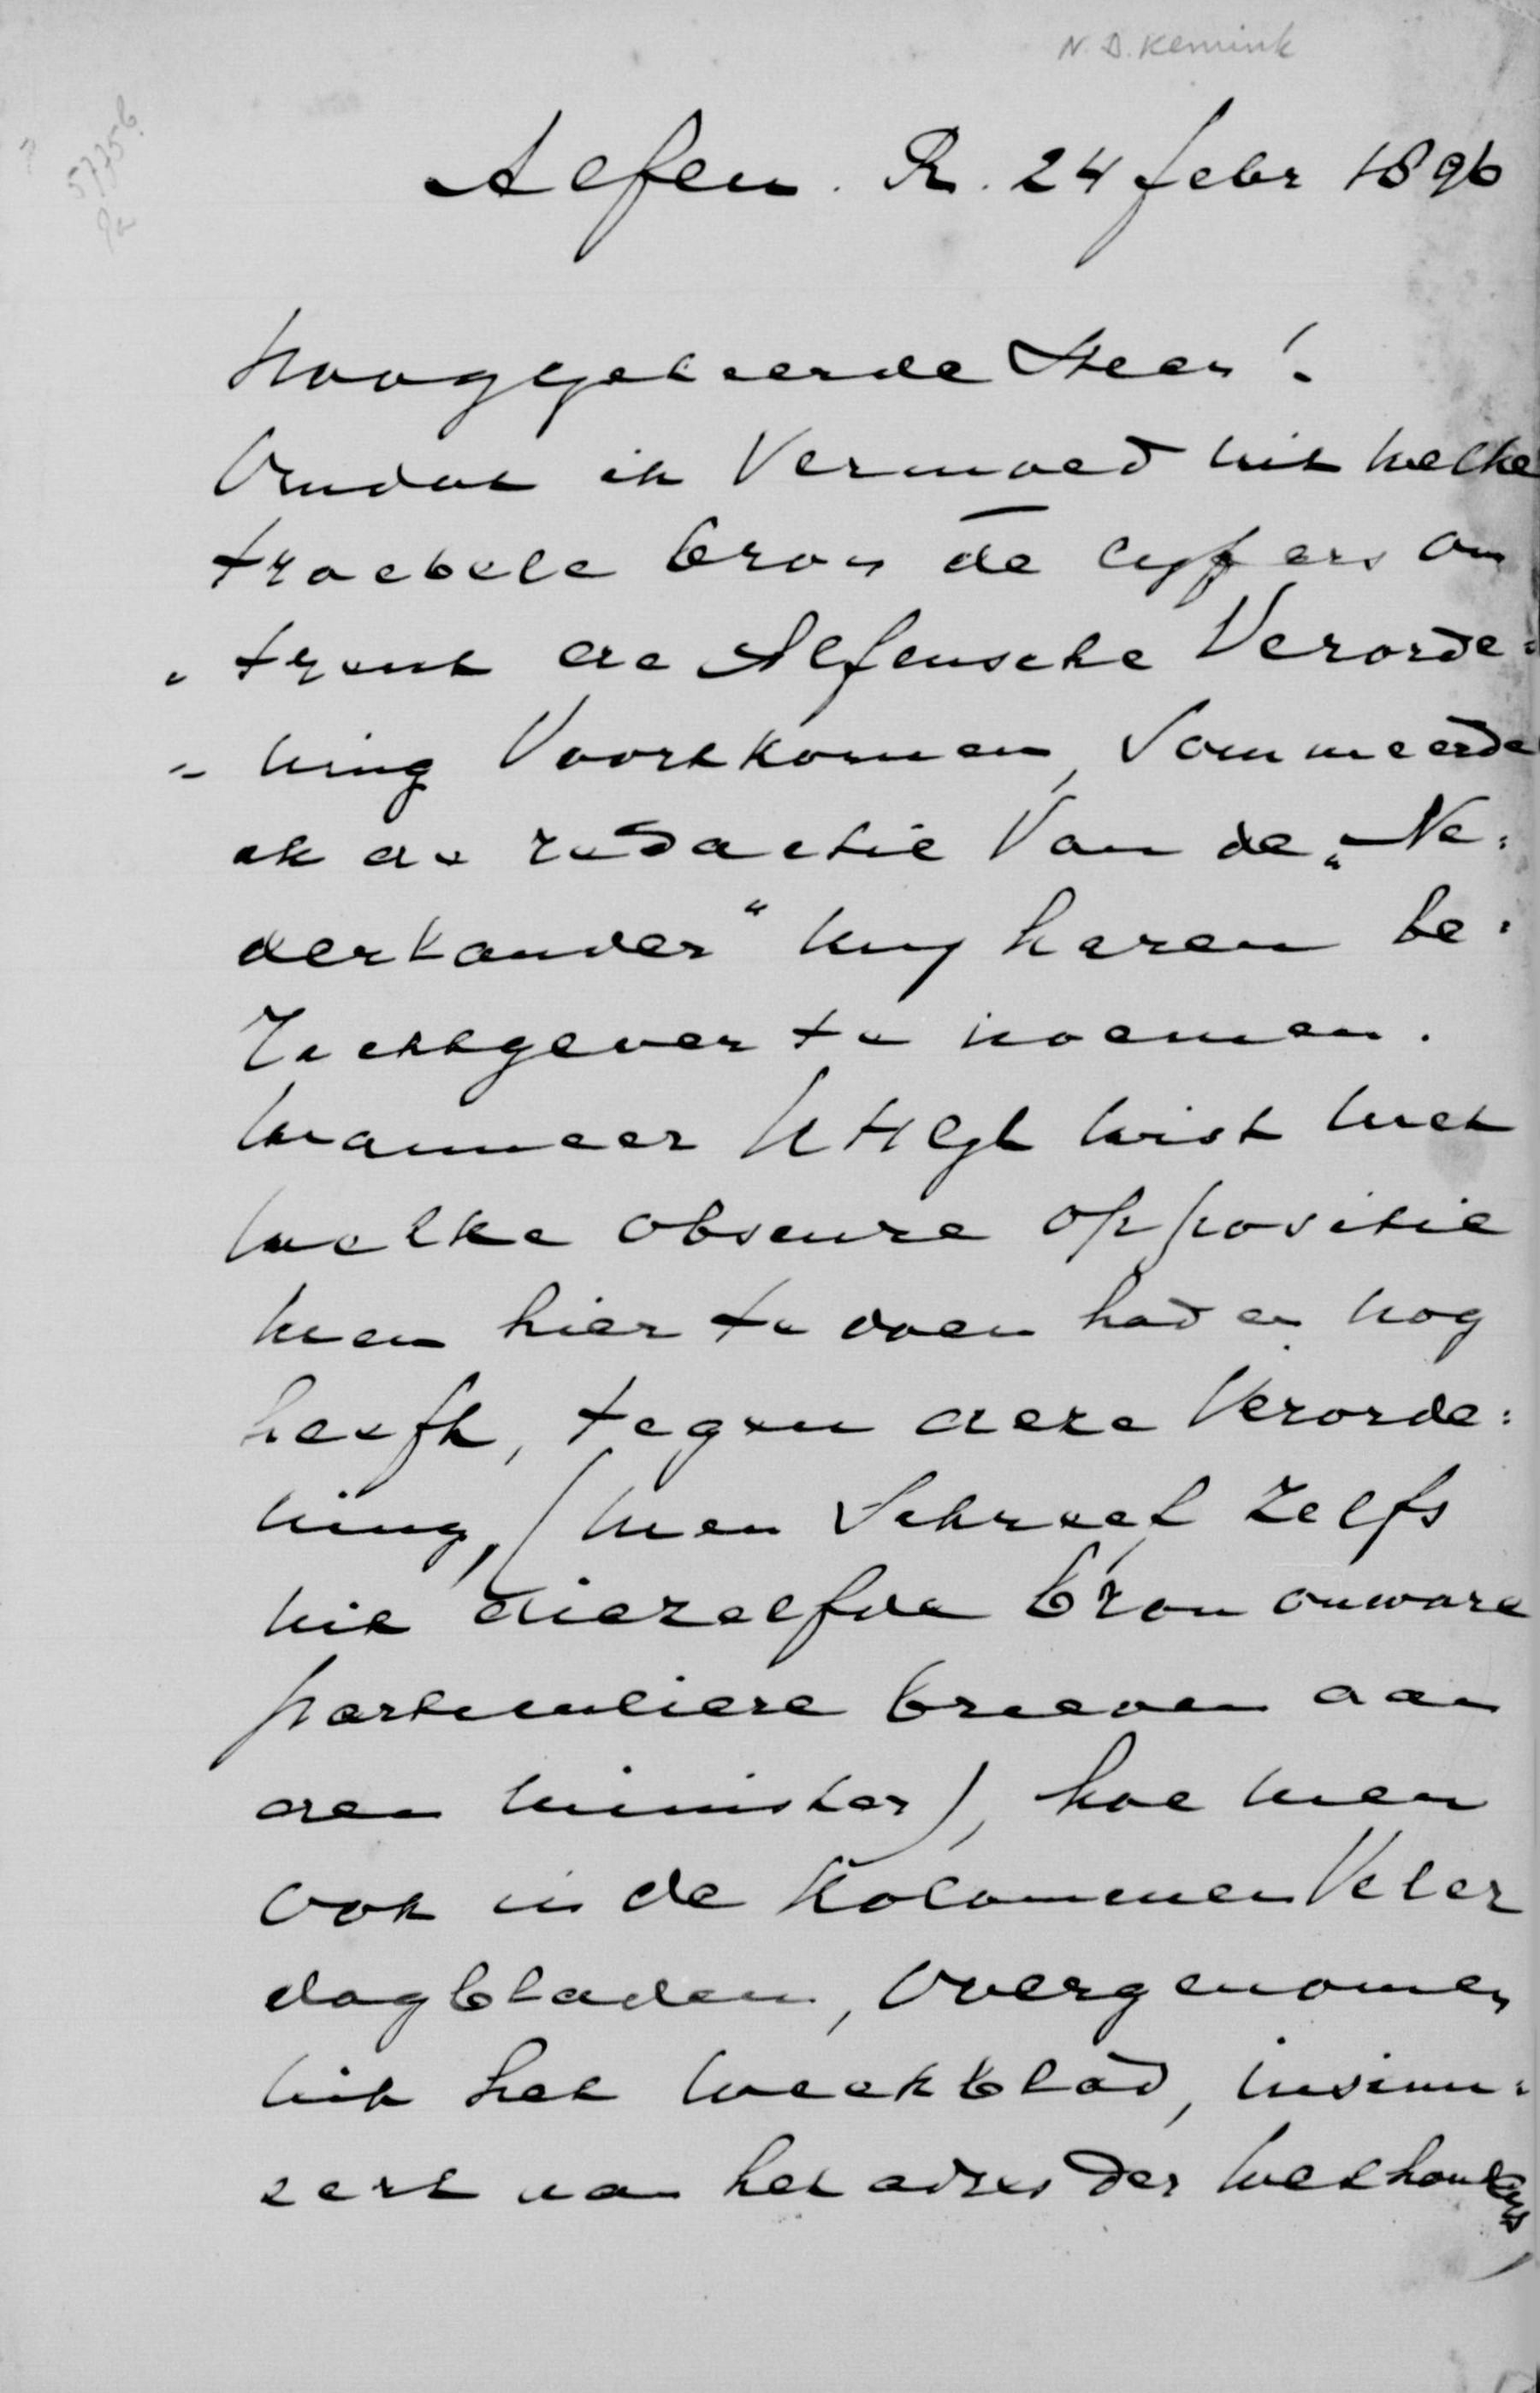 N. D. Kemink
5775b
2a
Alfen. R. 24 febr 1896
Hooggeleerde Heer!
Omdat ik Vermoed uit welke
troebele bron de cijfers om
„ trent de Alfensche Verorde:
„ ning Voortkomen, Sommeerde
ik de redactie Van de „Ne:
derlander" mij haren be:
richtgever te noemen.
Wanneer UHGl wist met
welke obscure oppositie
men hier te doen had en nog
heeft, tegen deze Verorde:
ning, (men Schreef zelfs
uit diezelfde bron onware
particuliere brieven aan
den minister), hoe men
ook in de Kolommen Veler
dagbladen, overgenomen
uit het weekblad, insinu:
eert aan het adres der Wethouders